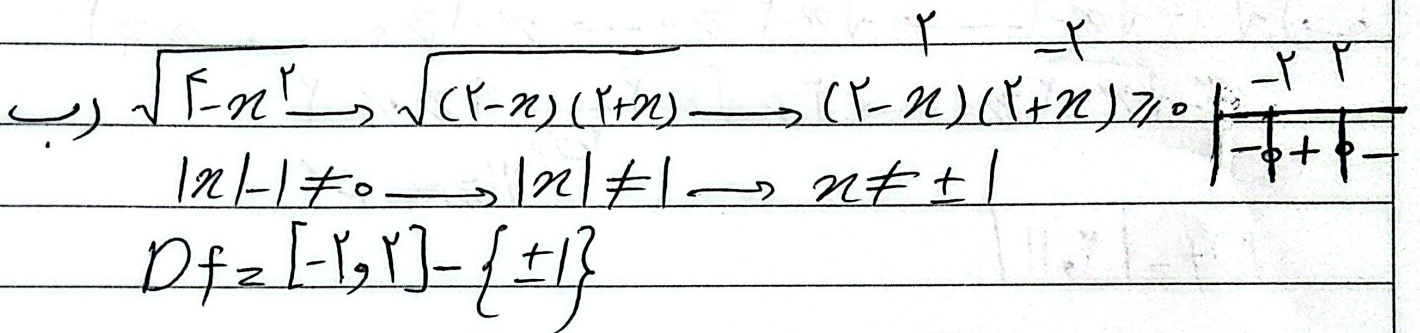 ب) √۴-x² → √(۲-x)(۲+x) → (۲-x)(۲+x) ⩾ ۰
۲ -۲
-۲ ۲
- ० + ० -
|x|-۱ ≠ ۰ → |x| ≠ ۱ → x ≠ ± ۱
Df = [-۲,۲] - {±۱}